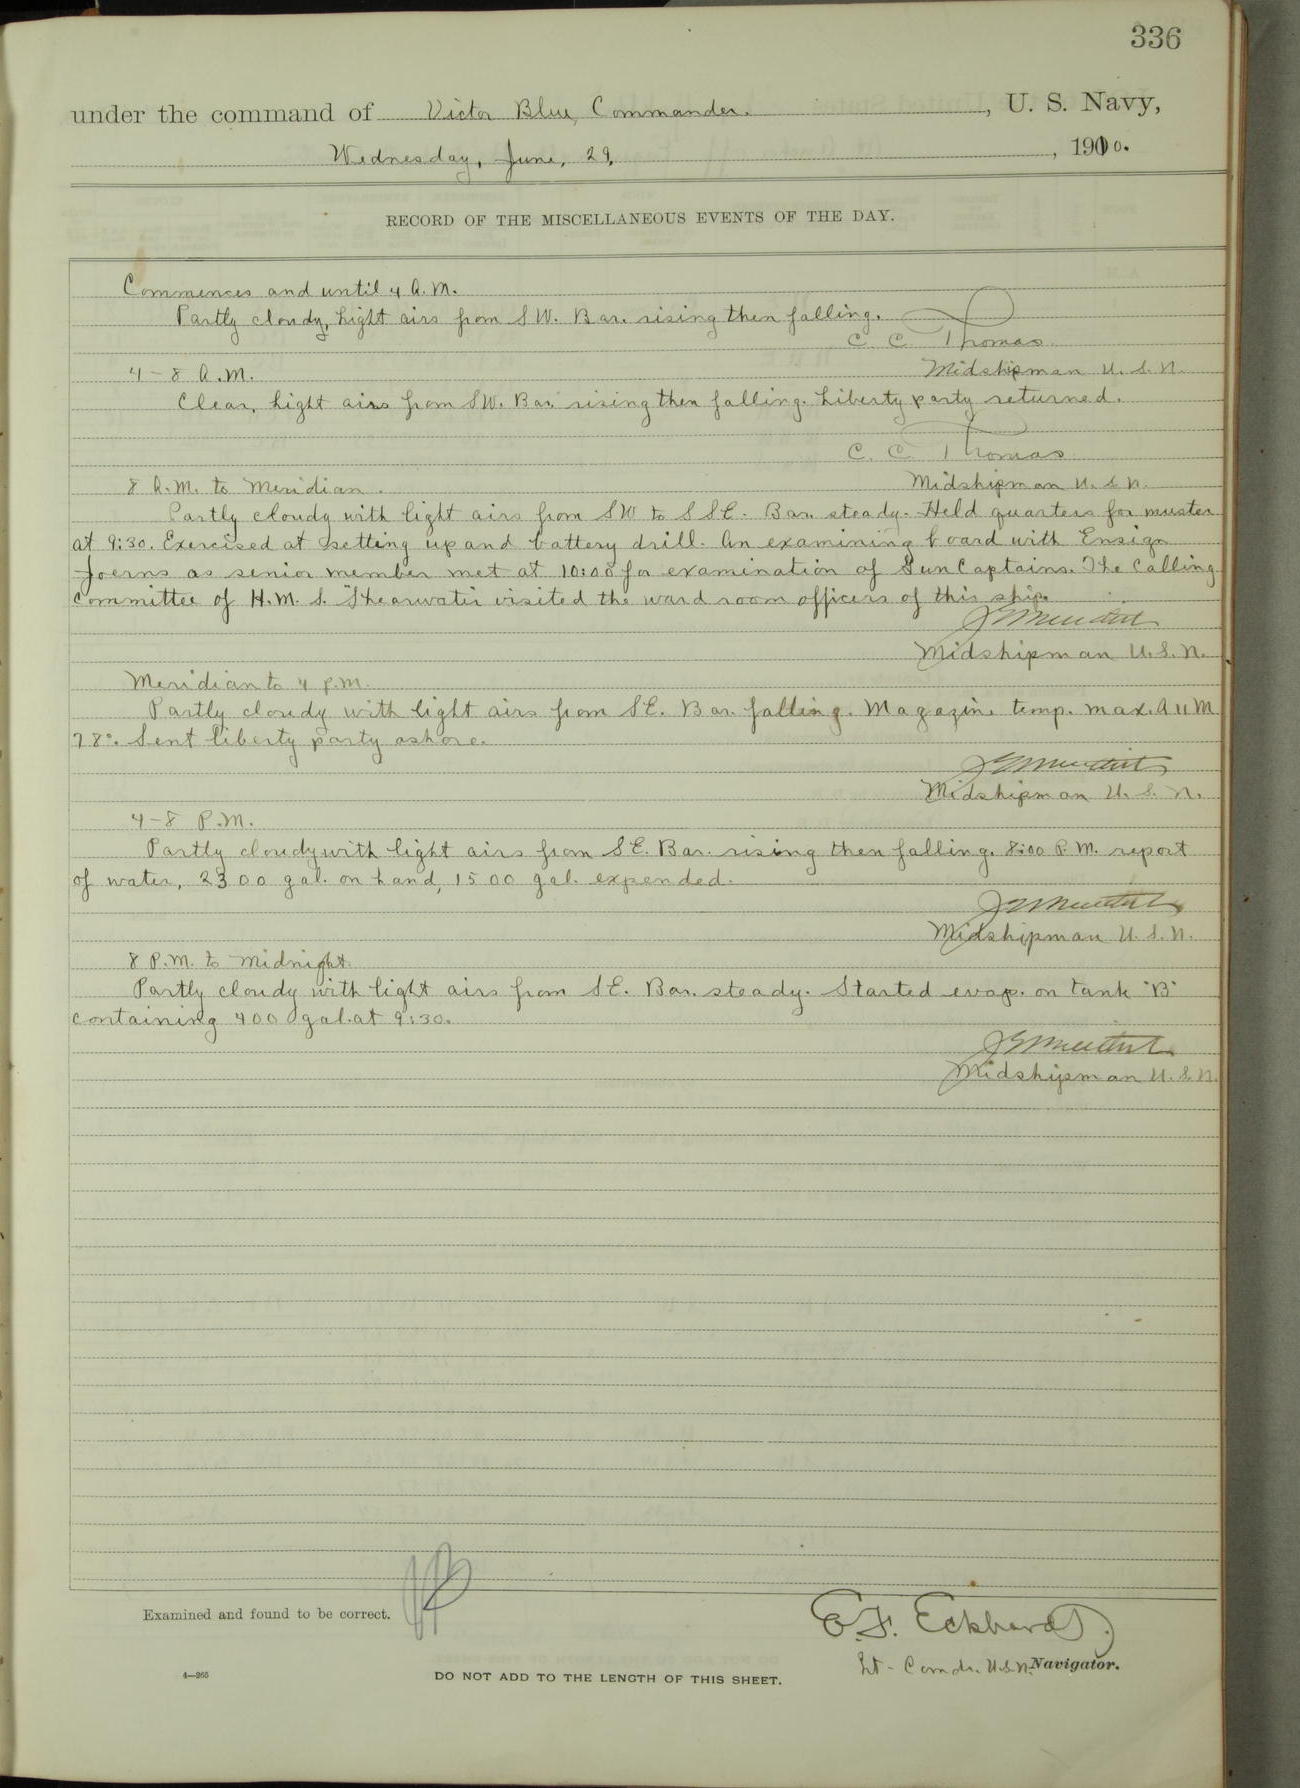 336
under the command of Victor Blue, Commander. , U. S. Navy,
Wednesday, June, 29, , 1910.
RECORD OF THE MISCELLANEOUS EVENTS OF THE DAY.
Commences and until 4 A.M.
Partly cloudy, Light airs from SW. Bar. rising then falling.
C. C. Thomas
Midshipman U. S. N.
4-8 A.M.
Clear, light airs from SW. Bar. rising then falling. Liberty party returned.
C. C. Thomas
Midshipman U. S. N.
8 A.M. to Meridian.
Partly cloudy with light airs from SW to SSE. Bar. steady. Held quarters for muster
at 9:30. Exercised at setting up and battery drill. An examining board with Ensign
Joerns as senior member met at 10:00 for examination of Gun Captains. The Calling
Committee of H.M.S. "Shearwater visited the ward room officers of this ship.
Midshipman U.S.N.
Meridian to 4 P.M.
Partly cloudy with light airs from SE. Bar. falling. Magazine temp. max. A 11 M
78°. Sent liberty party ashore.
Midshipman U. S. N.
4-8 P.M.
Partly cloudy with light airs from SE. Bar. rising then falling. 8:00 P.M. report
of water, 2300 gal. on hand, 1500 gal. expended.
Midshipman U.S.N.
8 P.M. to Midnight.
Partly cloudy with light airs from SE. Bar. steady. Started evap. on tank "B"
containing 400 gal. at 9:30.
Midshipman U.S.N.
Examined and found to be correct.
E. F. Eckhardt.
Lt-Comdr. U.S.N. Navigator.
4—265
DO NOT ADD TO THE LENGTH OF THIS SHEET.